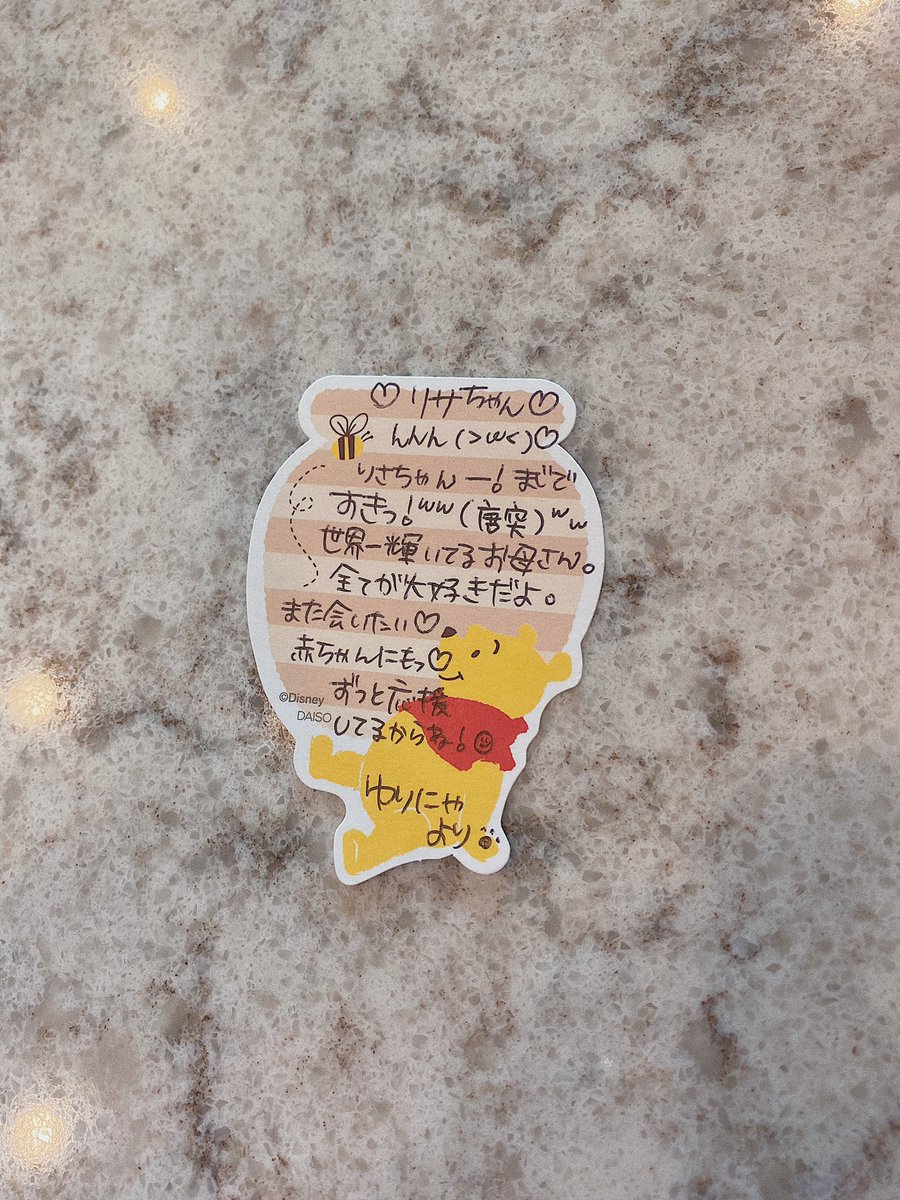 ♡リサちゃん♡
んんん(>ω<)♡
りさちゃんー!まじで
すきっ!ww(唐突)ww
世界一輝いてるお母さん。
全てが大好きだよ。
また会いたい♡
赤ちゃんにもっ♡
ずっと応援
してるからね!☺
ゆりにゃ
より
©Disney
DAISO